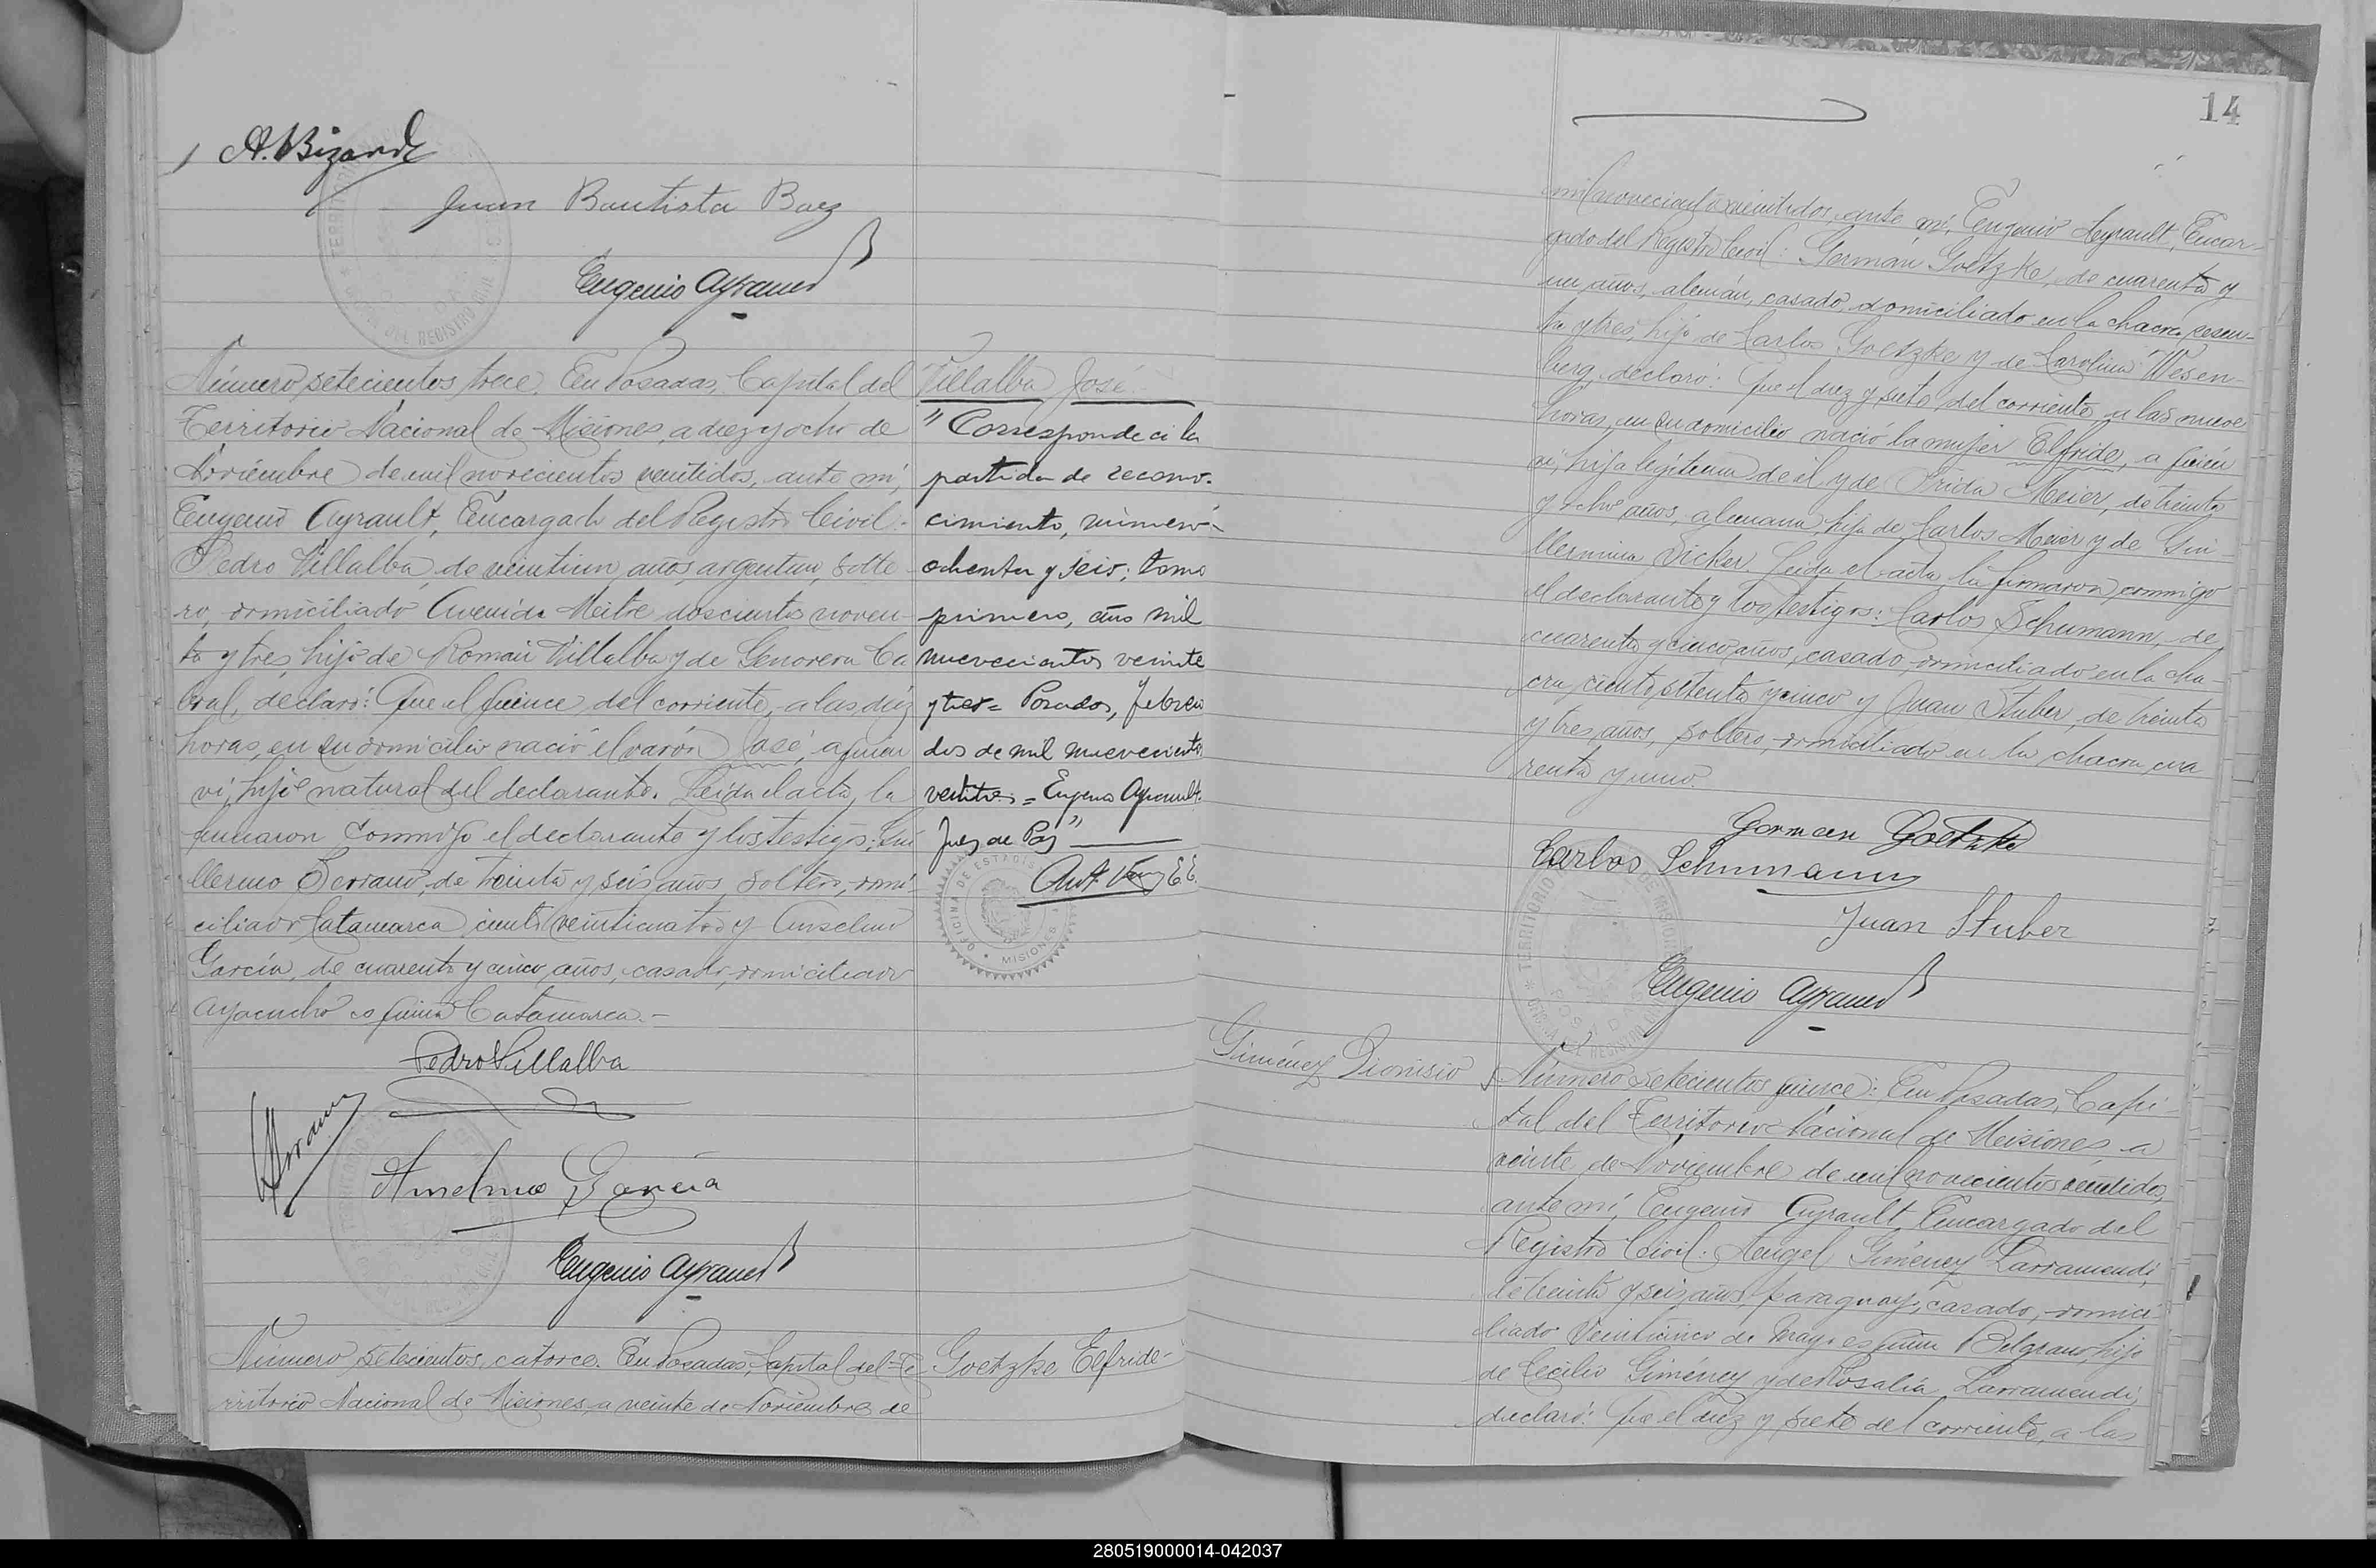 A. Bizardi
Juan Bautista Baez
Eugenio Ayrault
Número setecientos trece. En Posadas, Capital del
Territorio Nacional de Misiones, a diez y ocho de
Noviembre de mil novecientos veintidos, ante mí,
Eugenio Ayrault, Encargado del Registro Civil:
Pedro Villalba, de veintiun años, argentino, solte-
ro, domiciliado Avenida Mitre doscientos noven-
ta y tres, hijo de Román Villalba y de Genoveva Ca
bral, declaró: Que el quince del corriente, a las diez
horas, en su domicilio nació el varón José, a quien
vi, hijo natural del declarante. Leída el acta, la
firmaron conmigo el declarante y los testigos: Gui
llermo Serrano, de treinta y seis años, soltero, domi-
ciliado Catamarca ciento veinticuatro y Anselmo
García, de cuarenta y cinco años, casado, domiciliado
Ayacucho esquina Catamarca.-
Pedro Villalba
Anselmo García
Eugenio Ayrault
Número setecientos catorce. En Posadas, Capital del Te
rritorio Nacional de Misiones, a veinte de Noviembre de
Villalba José
"Corresponde a la
partida de recono-
cimiento, número
ochenta y seis, tomo
primero, año mil
nuevecientos veinte
y tres = Posadas, febrero
dos de mil nuevecientos
veititres = Eugenio Ayrault.
Juez de Paz"
OFICINA DE ESTADIS
MISIONES
Goetzke Elfride-
14
mil novecientos veintidos, ante mí, Eugenio Ayrault, Encar-
gado del Registro Civil: Germán Goetzke, de cuarenta y
un años, alemán, casado, domiciliado en la chacra sesen-
ta y tres, hijo de Carlos Goetzke y de Carolina Wesen-
berg, declaró: Que el diez y siete del corriente, a las nueve
horas, en su domicilio nació la mujer Elfride, a quien
vi, hija legítima de él y de Frida Meier, de treinta
y ocho años, alemana, hija de Carlos Meier y de Gui
llermina Sicker. Leída el acta, la firmaron conmigo
el declarante y los testigos: Carlos Schumann, de
cuarenta y cinco años, casado, domiciliado en la cha-
cra ciento setenta y cinco y Juan Stuber, de treinta
y tres años, soltero, domiciliado en la chacra cua
renta y uno.
German Goetzke
Carlos Schumann
Juan Stuber
Eugenio Ayrault
Giménez Dionisio
Número setecientos quince: En Posadas, Capi-
tal del Territorio Nacional de Misiones, a
veinte de Noviembre de mil novecientos veintidos,
ante mí, Eugenio Ayrault, Encargado del
Registro Civil: Angel Giménez Larramendi,
de treinta y seis años, paraguayo, casado, domici-
liado Veinticinco de Mayo esquina Belgrano, hijo
de Cecilio Giménez y de Rosalía Larramendi,
declaró: Que el diez y siete del corriente, a las
280519000014-042037